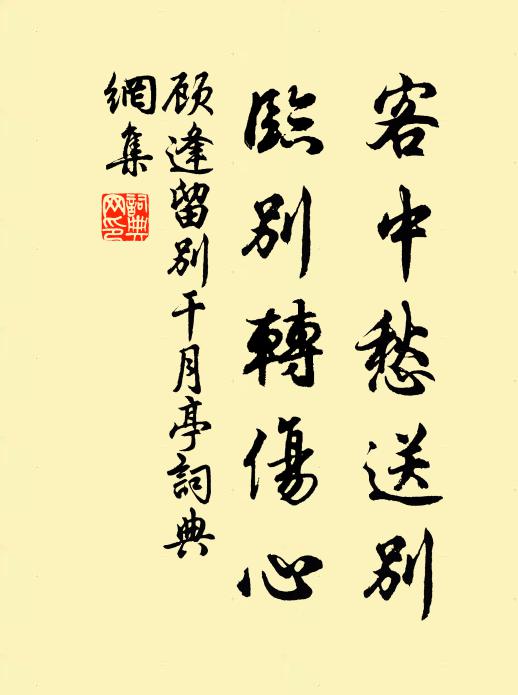 客中愁送别
臨别轉傷心
顾逢留别干月亭詞典
網集
詞典网印